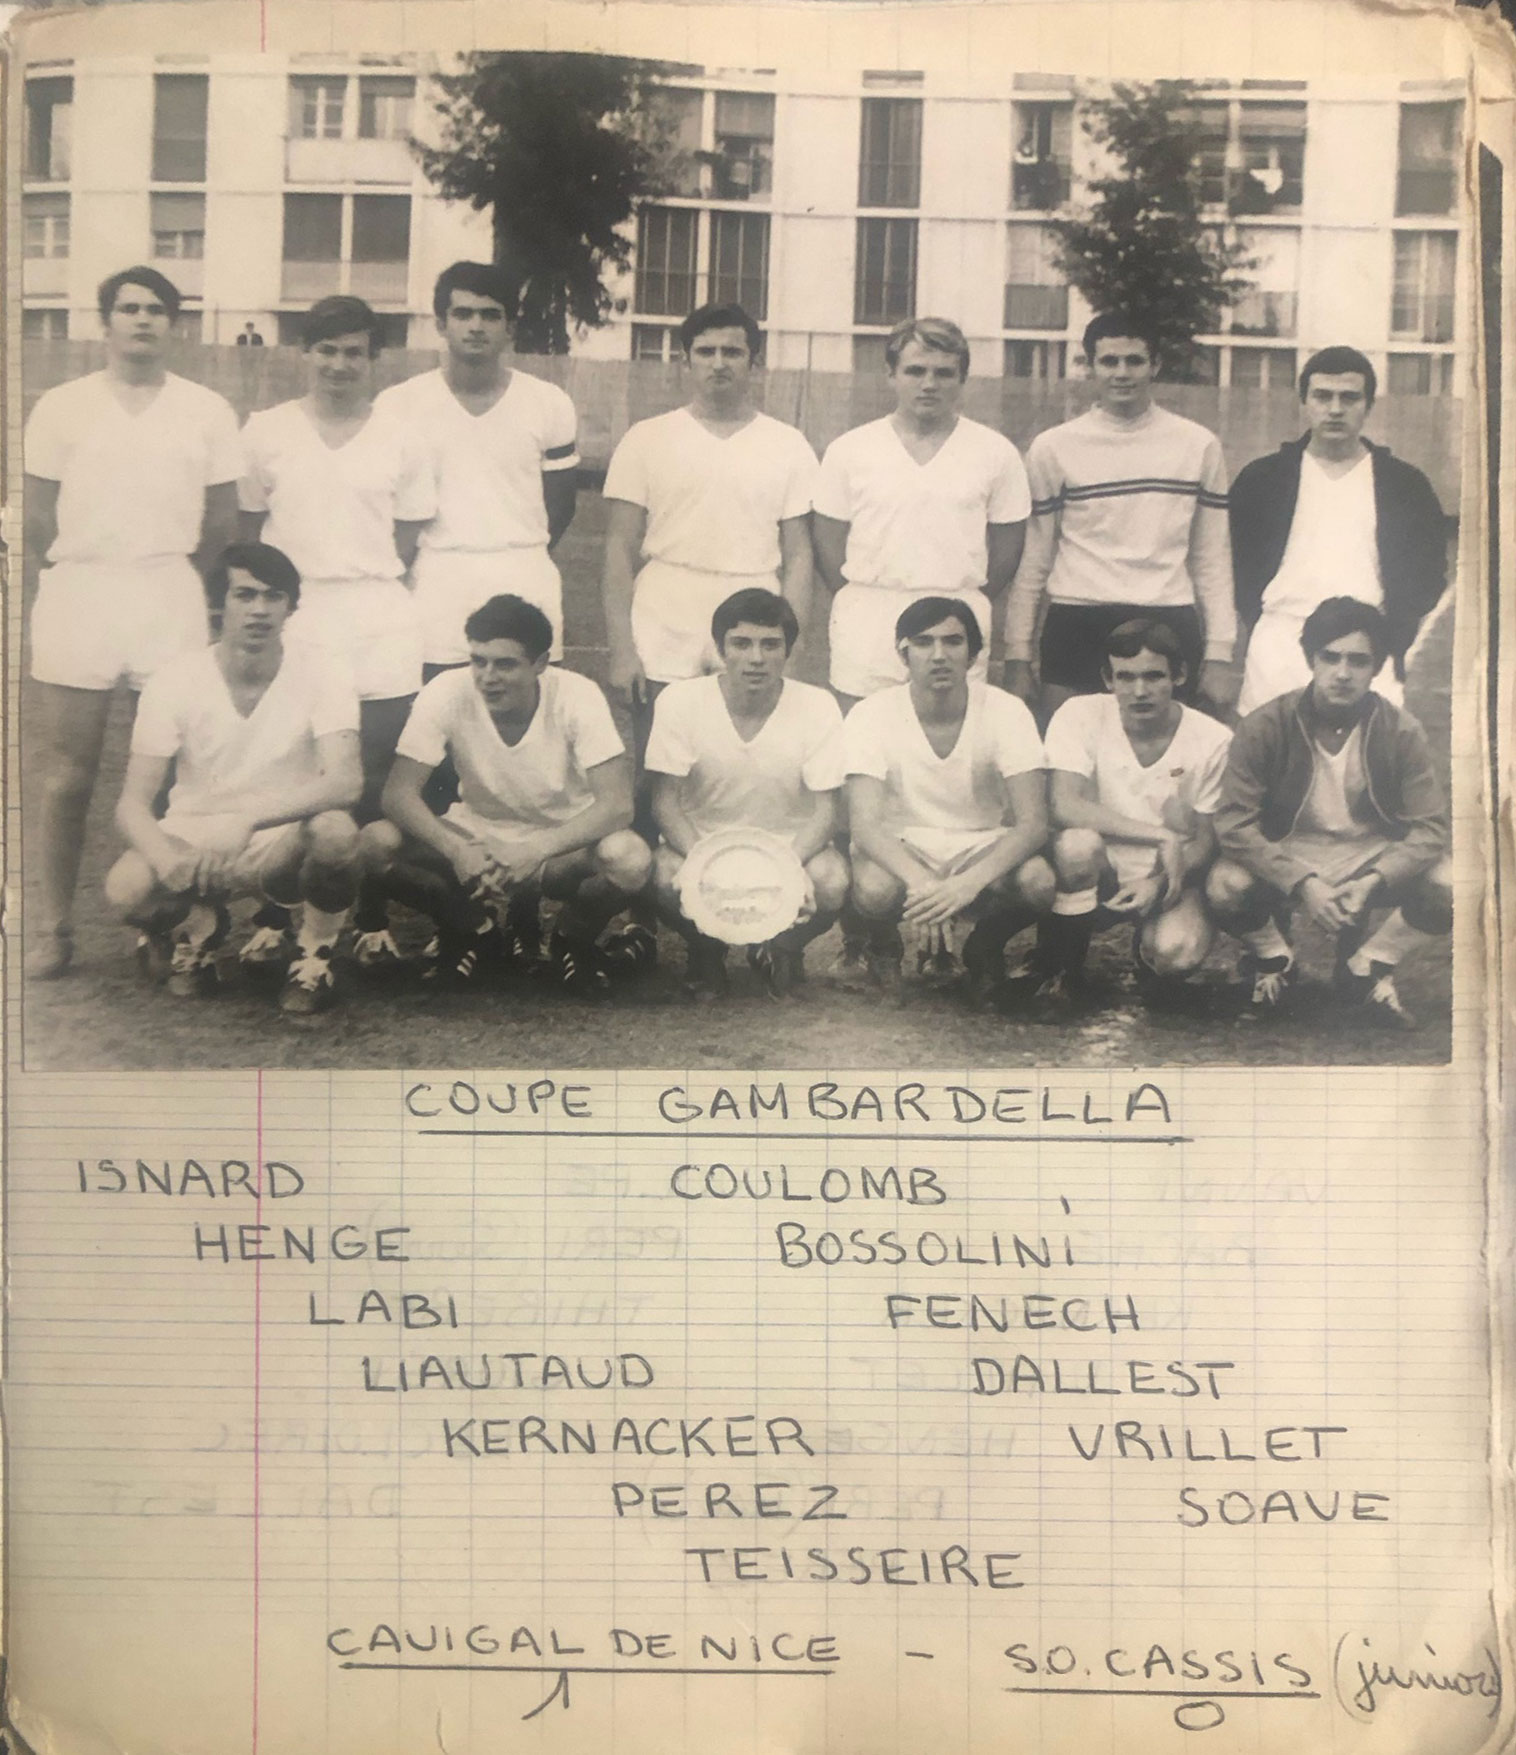 COUPE GAMBARDELLA
ISNARD COULOMB
HENGE BOSSOLINI
LABI FENECH
LIAUTAUD DALLEST
KERNACKER VRILLET
PEREZ SOAVE
TEISSEIRE
CAVIGAL DE NICE - S.O. CASSIS (juniors)
1 0